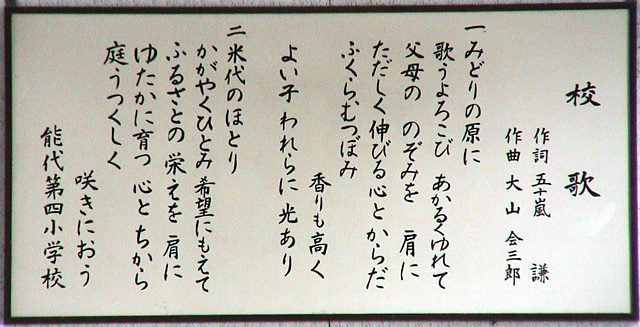 校歌
作詞 五十嵐 謙
作曲 大山 会三郎
一 みどりの原に
歌うよろこび あかるくゆれて
父母の のぞみを 肩に
ただしく伸びる心とからだ
ふくらむつぼみ
香りも高く
よい子 われらに 光あり
二 米代のほとり
かがやくひとみ 希望にもえて
ふるさとの 栄えを 肩に
ゆたかに育つ 心とちから
庭うつくしく
咲きにおう
能代第四小学校